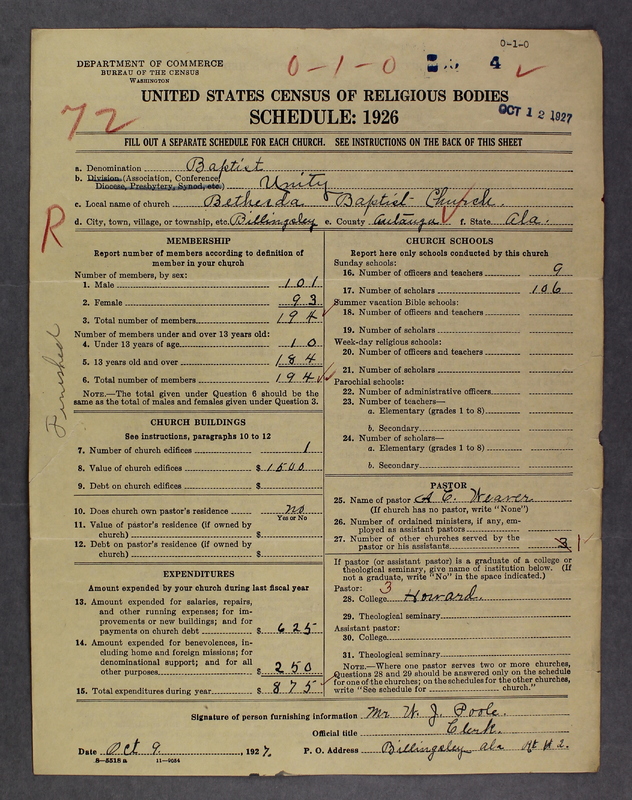 0-1-0
DEPARTMENT OF COMMERCE
BUREAU OF THE CENSUS
WASHINGTON
0-1-0
4
72
UNITED STATES CENSUS OF RELIGIOUS BODIES
SCHEDULE: 1926
OCT 12 1927
FILL OUT A SEPARATE SCHEDULE FOR EACH CHURCH. SEE INSTRUCTIONS ON THE BACK OF THIS SHEET
a. Denomination Baptist
b. Division (Association, Conference, Diocese, Presbytery, Synod, etc.) Unity
c. Local name of church Bethesda Baptist Church.
d. City, town, village, or township, etc. Billingsley e. County Autauga f. State Ala.
R
Finished
MEMBERSHIP
Report number of members according to definition of
member in your church
Number of members, by sex:
1. Male 101
2. Female 93
3. Total number of members 194
Number of members under and over 13 years old:
4. Under 13 years of age 10
5. 13 years old and over 184
6. Total number of members 194
NOTE.—The total given under Question 6 should be the
same as the total of males and females given under Question 3.
CHURCH BUILDINGS
See instructions, paragraphs 10 to 12
7. Number of church edifices 1
8. Value of church edifices $ 1500
9. Debt on church edifices $
10. Does church own pastor's residence? no
Yes or No
11. Value of pastor's residence (if owned by
church) $
12. Debt on pastor's residence (if owned by
church) $
EXPENDITURES
Amount expended by your church during last fiscal year
13. Amount expended for salaries, repairs,
and other running expenses; for im-
provements or new buildings; and for
payments on church debt $ 625
14. Amount expended for benevolences, in-
cluding home and foreign missions; for
denominational support; and for all
other purposes $ 250
15. Total expenditures during year $ 875
CHURCH SCHOOLS
Report here only schools conducted by this church
Sunday schools:
16. Number of officers and teachers 9
17. Number of scholars 106
Summer vacation Bible schools:
18. Number of officers and teachers
19. Number of scholars
Week-day religious schools:
20. Number of officers and teachers
21. Number of scholars
Parochial schools:
22. Number of administrative officers
23. Number of teachers—
a. Elementary (grades 1 to 8)
b. Secondary
24. Number of scholars—
a. Elementary (grades 1 to 8)
b. Secondary
PASTOR
25. Name of pastor A C. Weaver
(If church has no pastor, write "None")
26. Number of ordained ministers, if any, em-
ployed as assistant pastors
27. Number of other churches served by the
pastor or his assistants 3 1
If pastor (or assistant pastor) is a graduate of a college or
theological seminary, give name of institution below. (If
not a graduate, write "No" in the space indicated.)
Pastor: 3
28. College Howard.
29. Theological seminary
Assistant pastor:
30. College
31. Theological seminary
NOTE.—Where one pastor serves two or more churches,
Questions 28 and 29 should be answered only on the schedule
for one of the churches; on the schedules for the other churches,
write "See schedule for church."
Signature of person furnishing information Mr W. J. Poole.
Official title Clerk.
Date Oct 9, 1927. P. O. Address Billingsley Ala Rt # 2.
8-5518a 11-9054